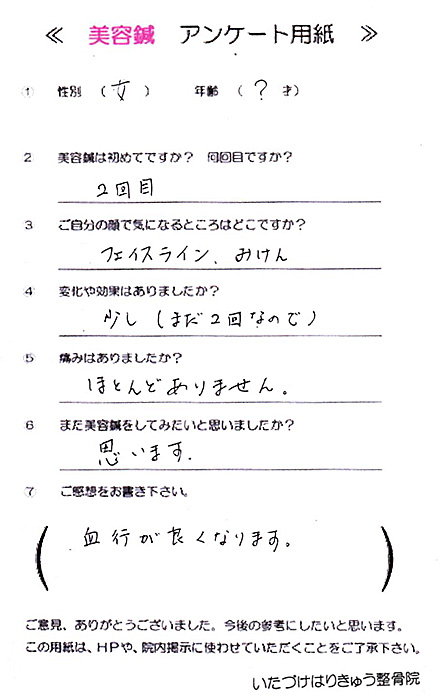 ≪ 美容鍼 アンケート用紙 ≫
① 性別 ( 女 ) 年齢 ( ? 才)
2 美容鍼は初めてですか? 何回目ですか?
2回目
3 ご自分の顔で気になるところはどこですか?
フェイスライン、みけん
④ 変化や効果はありましたか?
少し (まだ2回なので)
⑤ 痛みはありましたか?
ほとんどありません。
6 また美容鍼をしてみたいと思いましたか?
思います.
⑦ ご感想をお書き下さい。
(血行が良くなります。)
ご意見、ありがとうございました。今後の参考にしたいと思います。
この用紙は、HPや、院内掲示に使わせていただくことをご了承下さい。
いたづけはりきゅう整骨院